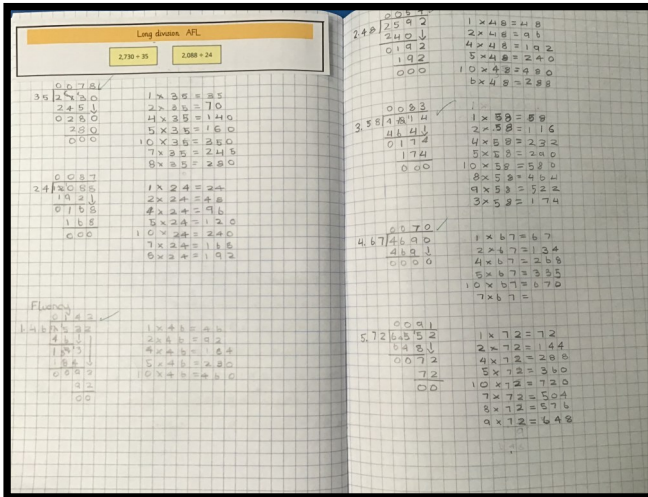 Long division AFL
2,730 ÷ 35
2,088 ÷ 24
0078
35 2730
245↓
0280
280
000
1 x 35 = 35
2 x 35 = 70
4 x 35 = 140
5 x 35 = 160
10 x 35 = 350
7 x 35 = 245
8 x 35 = 280
0087
24 2088
192↓
0168
168
000
1 x 24 = 24
2 x 24 = 48
4 x 24 = 96
5 x 24 = 120
10 x 24 = 240
7 x 24 = 168
8 x 24 = 192
Fluency
0092
92
00
1 x 46 = 46
2 x 46 = 92
4 x 46 = 184
5 x 46 = 230
10 x 46 = 460
2. 48 2592
240↓
0192
192
000
1 x 48 = 48
2 x 48 = 96
4 x 48 = 192
5 x 48 = 240
10 x 48 = 480
6 x 48 = 288
0083
3. 58 4814
464↓
0174
174
000
1 x 58 = 58
2 x 58 = 116
4 x 58 = 232
5 x 58 = 290
10 x 58 = 580
8 x 58 = 464
9 x 58 = 522
3 x 58 = 174
0070
4. 67 4690
469↓
0000
1 x 67 = 67
2 x 67 = 134
4 x 67 = 268
5 x 67 = 335
10 x 67 = 670
7 x 67 =
0091
5. 72 6552
648↓
0072
72
00
1 x 72 = 72
2 x 72 = 144
4 x 72 = 288
5 x 72 = 360
10 x 72 = 720
7 x 72 = 504
8 x 72 = 576
9 x 72 = 648